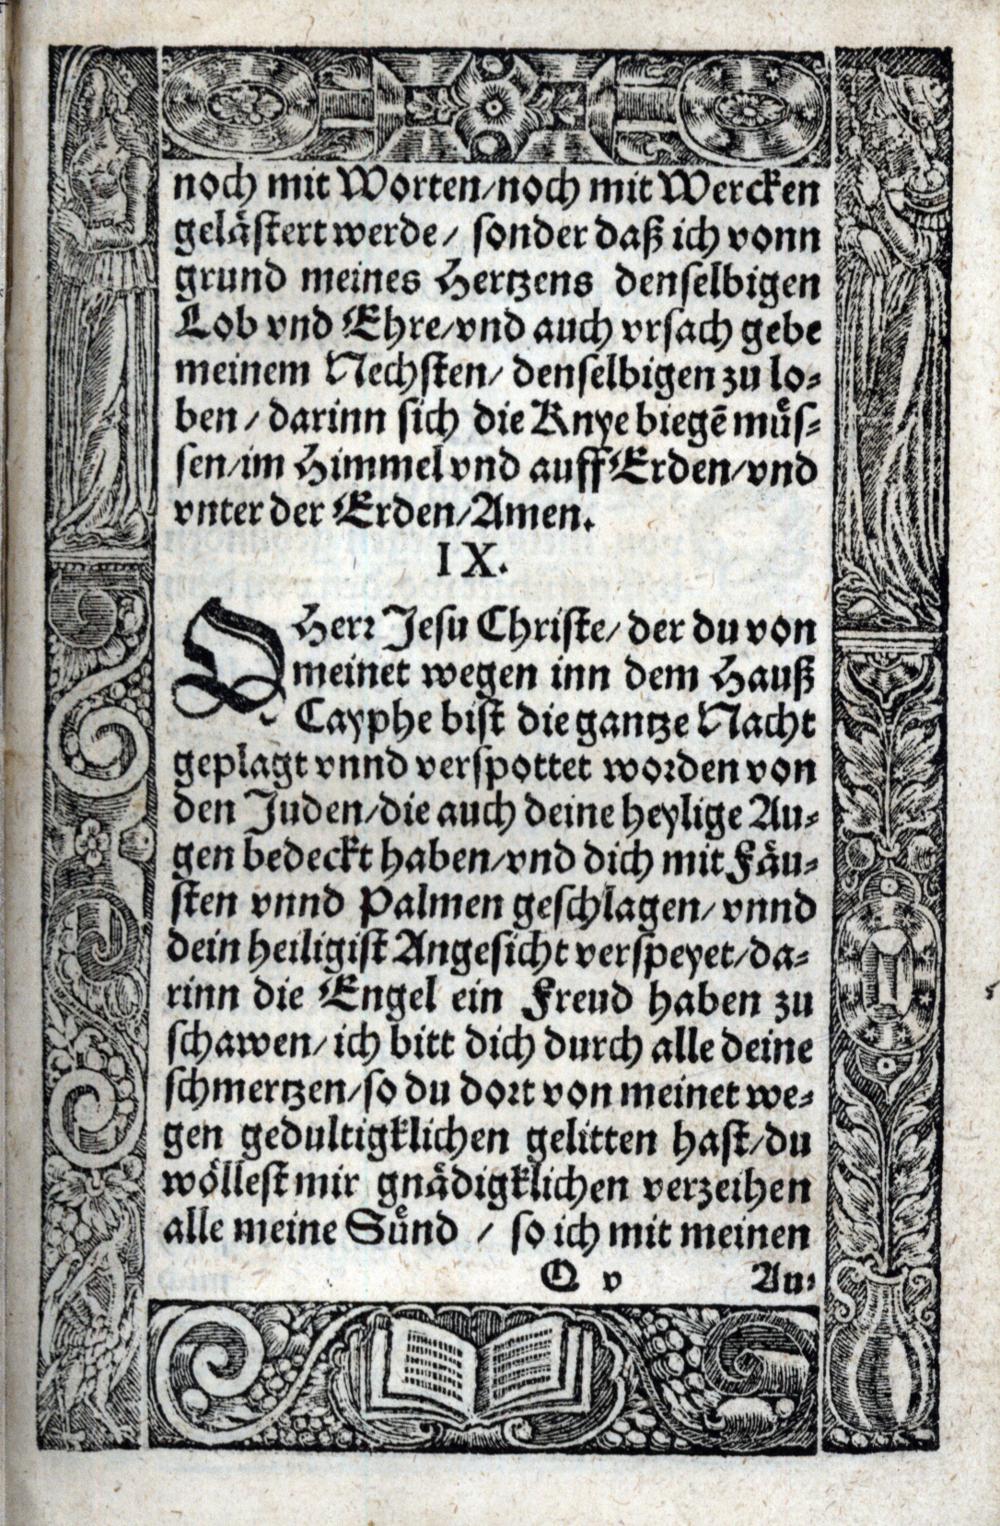 noch mit Worten/noch mit Wercken
gelåſtert werde/ ſonder daß ich vonn
grund meines Hertzens denſelbigen
Lob vnd Ehre/vnd auch vrſach gebe
meinem Nechſten/ denſelbigen zu lo⸗
ben/ darinn ſich die Knye biegē můſ⸗
ſen/im Himmel vnd auff Erden/vnd
vnter der Erden/Amen.
IX.
O Herꝛ Jeſu Chriſte/ der du von
meinet wegen inn dem Hauß
Cayphe biſt die gantze Nacht
geplagt vnnd verſpottet woꝛden von
den Juden/die auch deine heylige Au⸗
gen bedeckt haben/vnd dich mit Fåu⸗
ſten vnnd Palmen geſchlagen/ vnnd
dein heiligiſt Angeſicht verſpeyet/da⸗
rinn die Engel ein Freud haben zu
ſchawen/ ich bitt dich durch alle deine
ſchmertzen/ſo du doꝛt von meinet we⸗
gen gedultigklichen gelitten haſt/du
wölleſt mir gnådigklichen verzeihen
alle meine Sůnd / ſo ich mit meinen
Q v An⸗